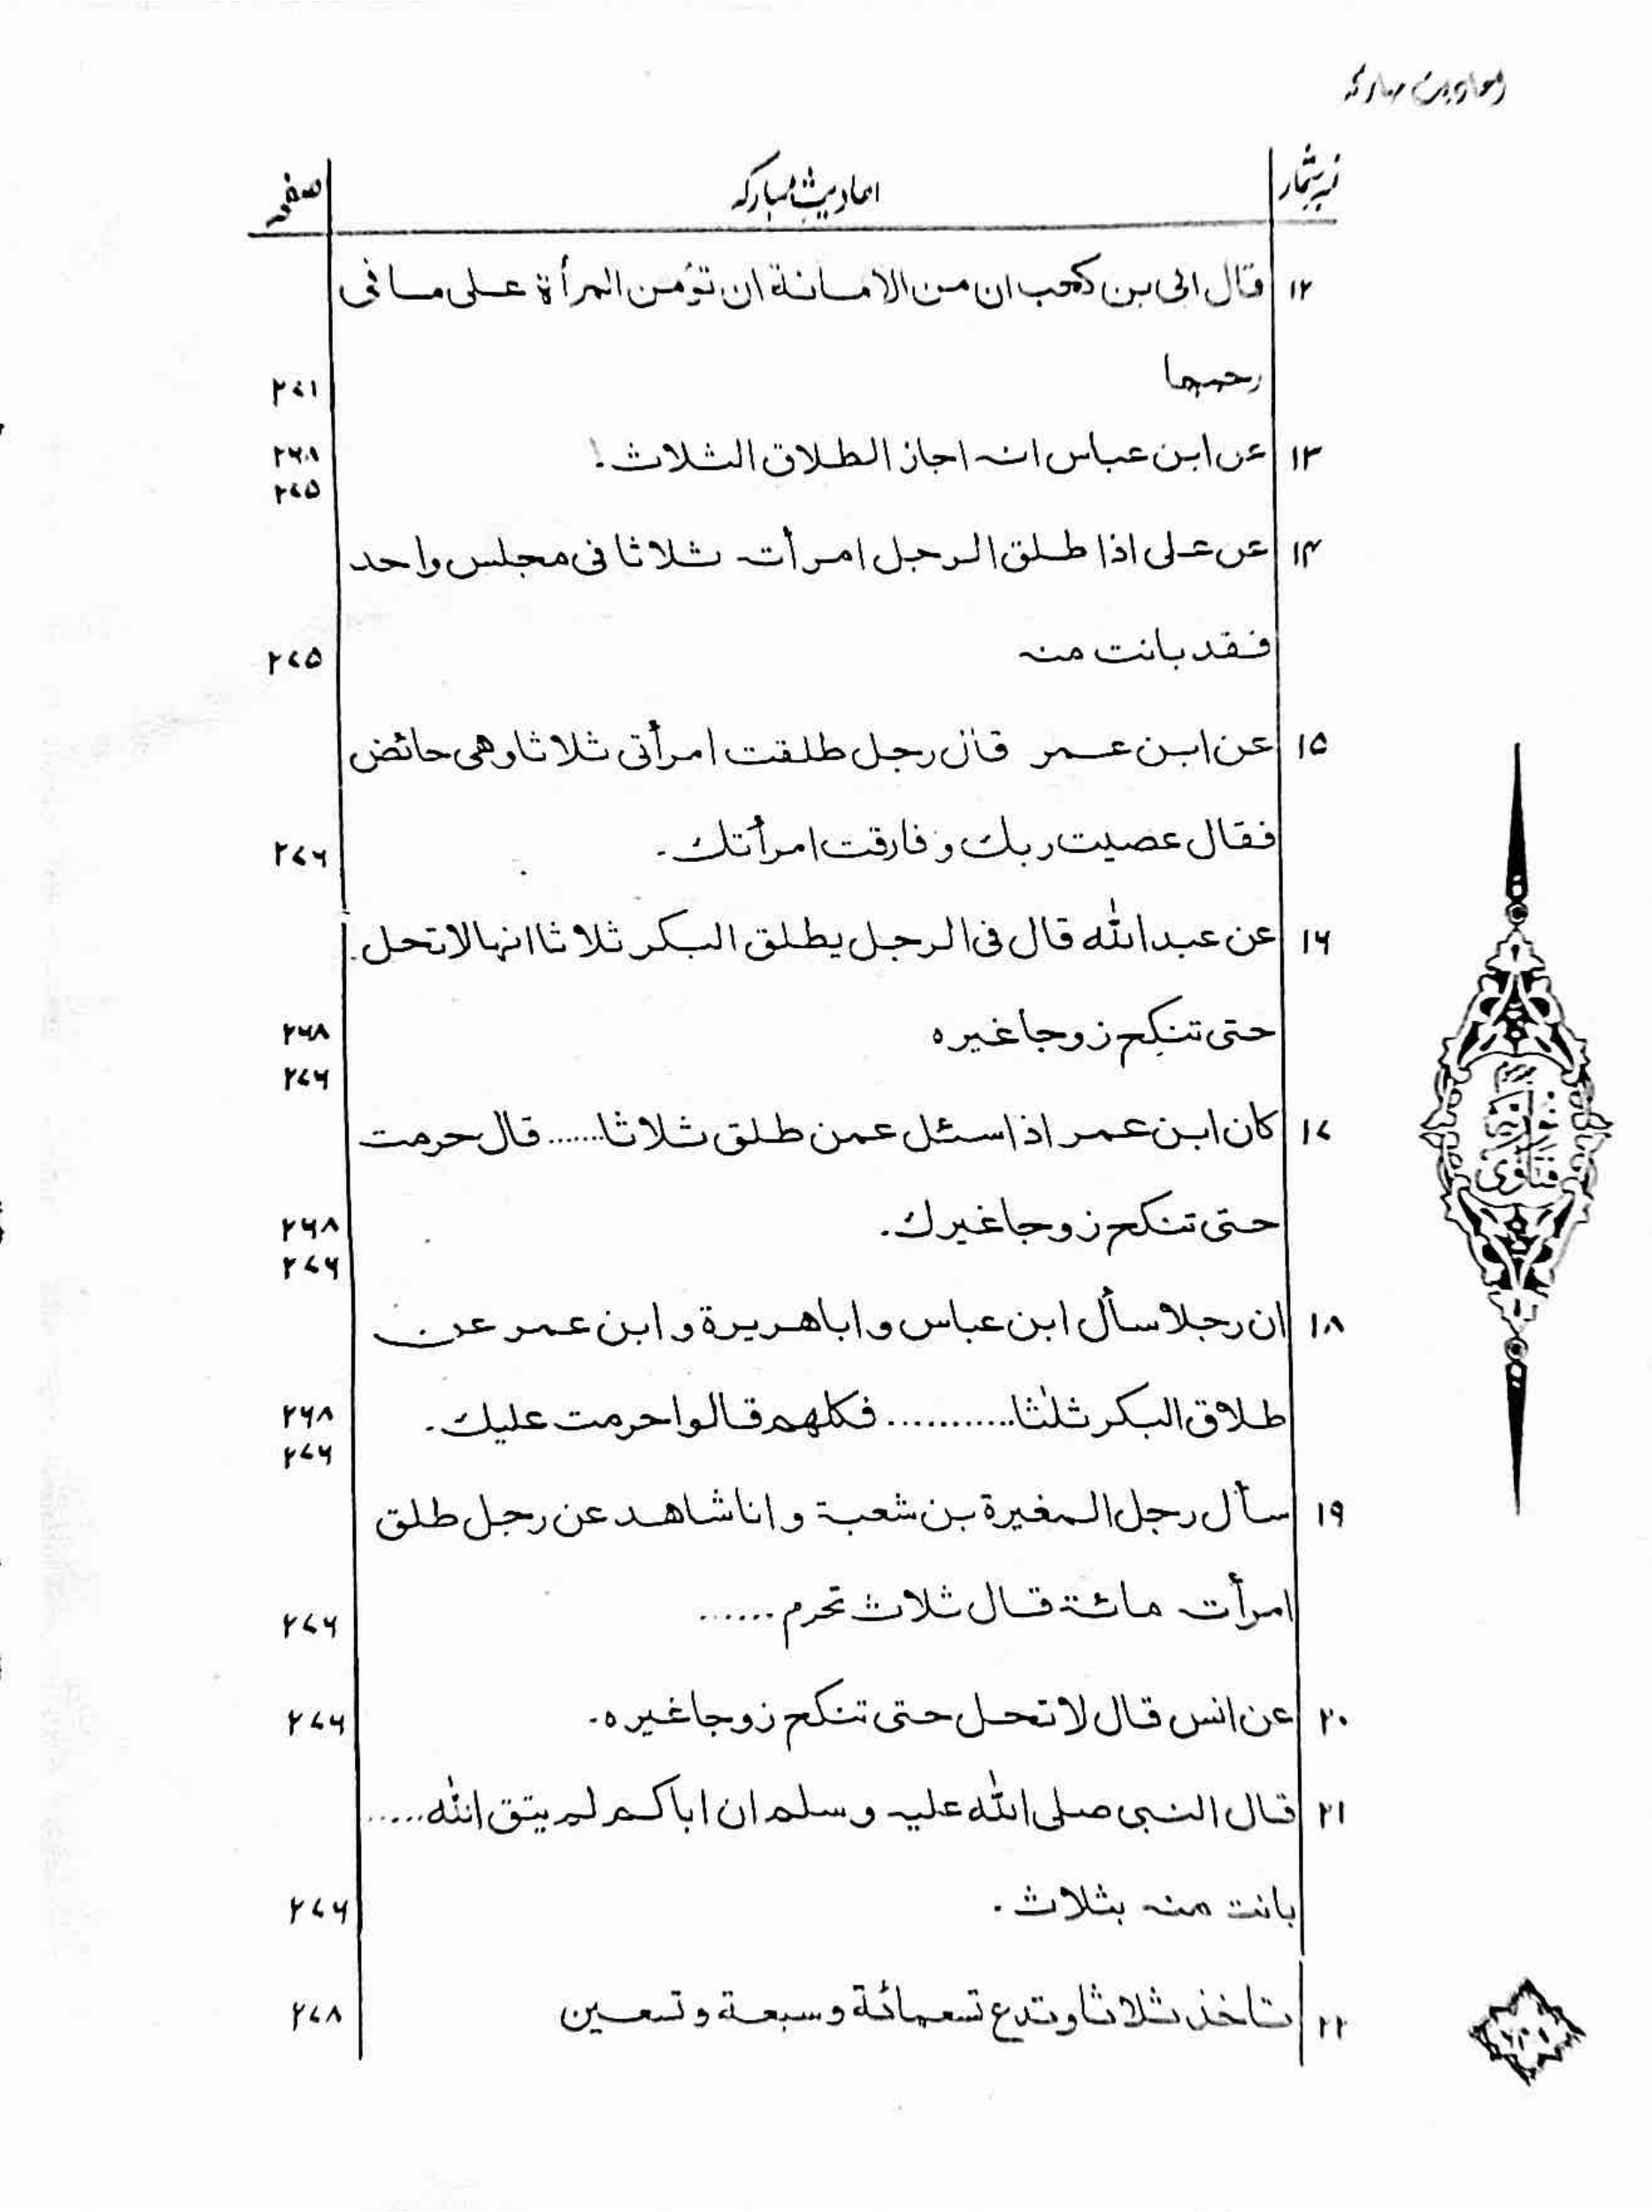 احادیث مبارکہ
نمبر شمار احادیث مبارکہ صفحہ
۱۲ قال ابی بن کعب ان من الامانة ان تؤمن المرأة علی ما فی
رحمها ۲۷۱
۱۳ عن ابن عباس انہ اجاز الطلاق الثلاث۔ ۲۶۸
۲۷۵
۱۴ عن علی اذا طلق الرجل امرأتہ ثلاثا فی مجلس واحد
فقد بانت منہ ۲۷۵
۱۵ عن ابن عمر قال رجل طلقت امرأتی ثلاثا وهی حائض
فقال عصیت ربك وفارقت امرأتك۔ ۲۷۶
۱۶ عن عبداللہ قال فی الرجل یطلق البکر ثلاثا انہا لا تحل
حتی تنکح زوجا غیرہ ۲۶۸
۲۷۶
۱۷ کان ابن عمر اذا سئل عمن طلق ثلاثا...... قال حرمت
حتی تنکح زوجا غیرك۔ ۲۶۸
۲۷۶
۱۸ ان رجلا سأل ابن عباس و اباهریرة و ابن عمر عن
طلاق البکر ثلٰثا........... فکلهم قالوا حرمت علیك۔ ۲۶۸
۲۷۶
۱۹ سأل رجل المغیرة بن شعبۃ وانا شاهد عن رجل طلق
امرأتہ مائۃ قال ثلاث تحرم ...... ۲۷۶
۲۰ عن انس قال لا تحل حتی تنکح زوجا غیرہ۔ ۲۷۶
۲۱ قال النبی صلی اللہ علیہ وسلم ان اباکم لم یتق اللہ.....
بانت منہ بثلاث۔ ۲۷۶
۲۲ تاخذ ثلاثا وتدع تسعمائة وسبعة وتسعین ۲۷۸